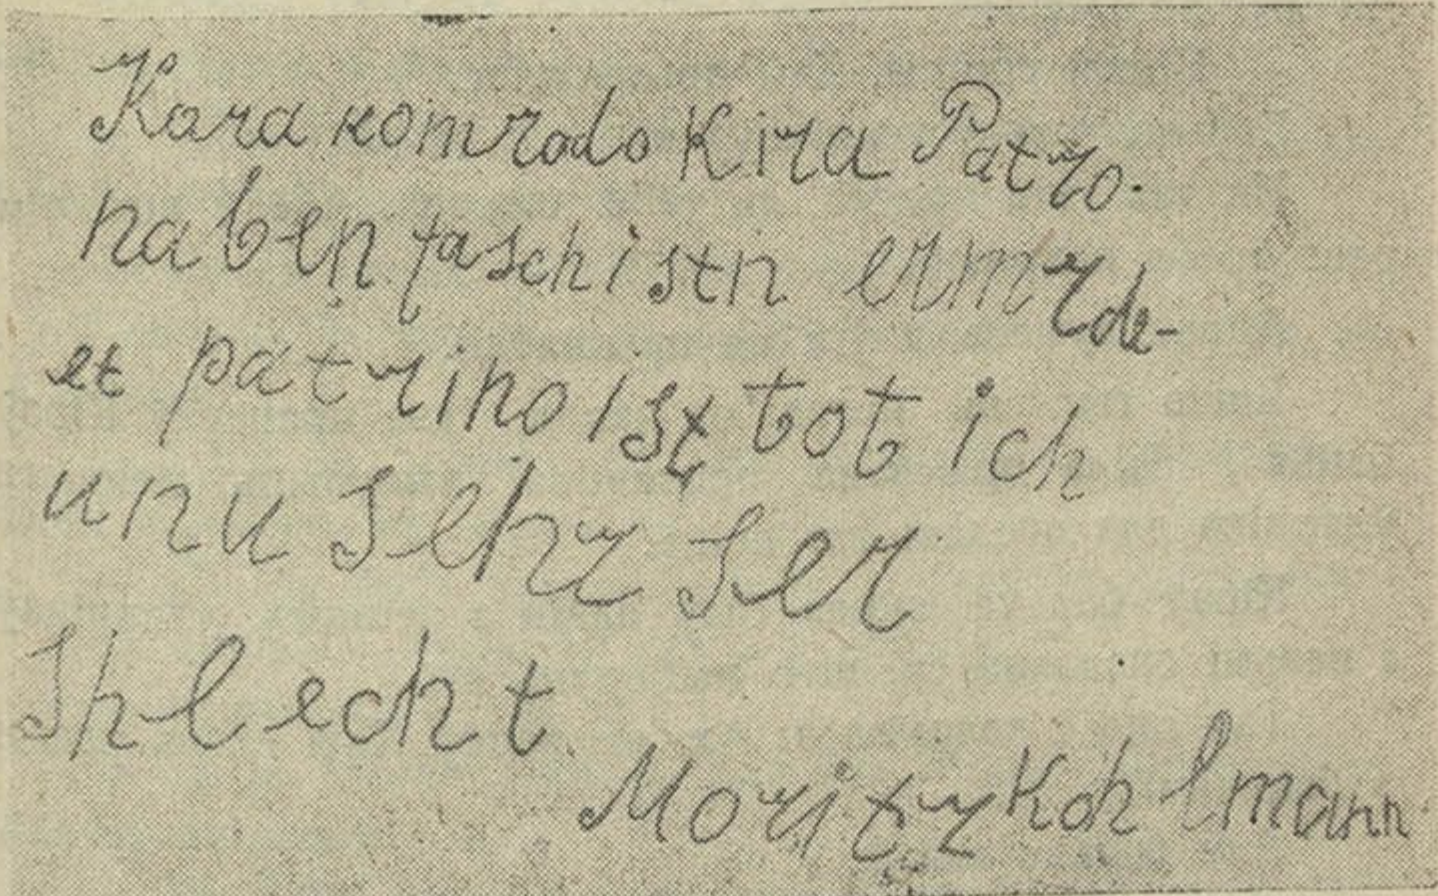 Kara komrado Kira Patro
haben faschistn ermrde-
et patrino ist tot ich
unu sehr ser
shlecht.
Moritz Kohlmann